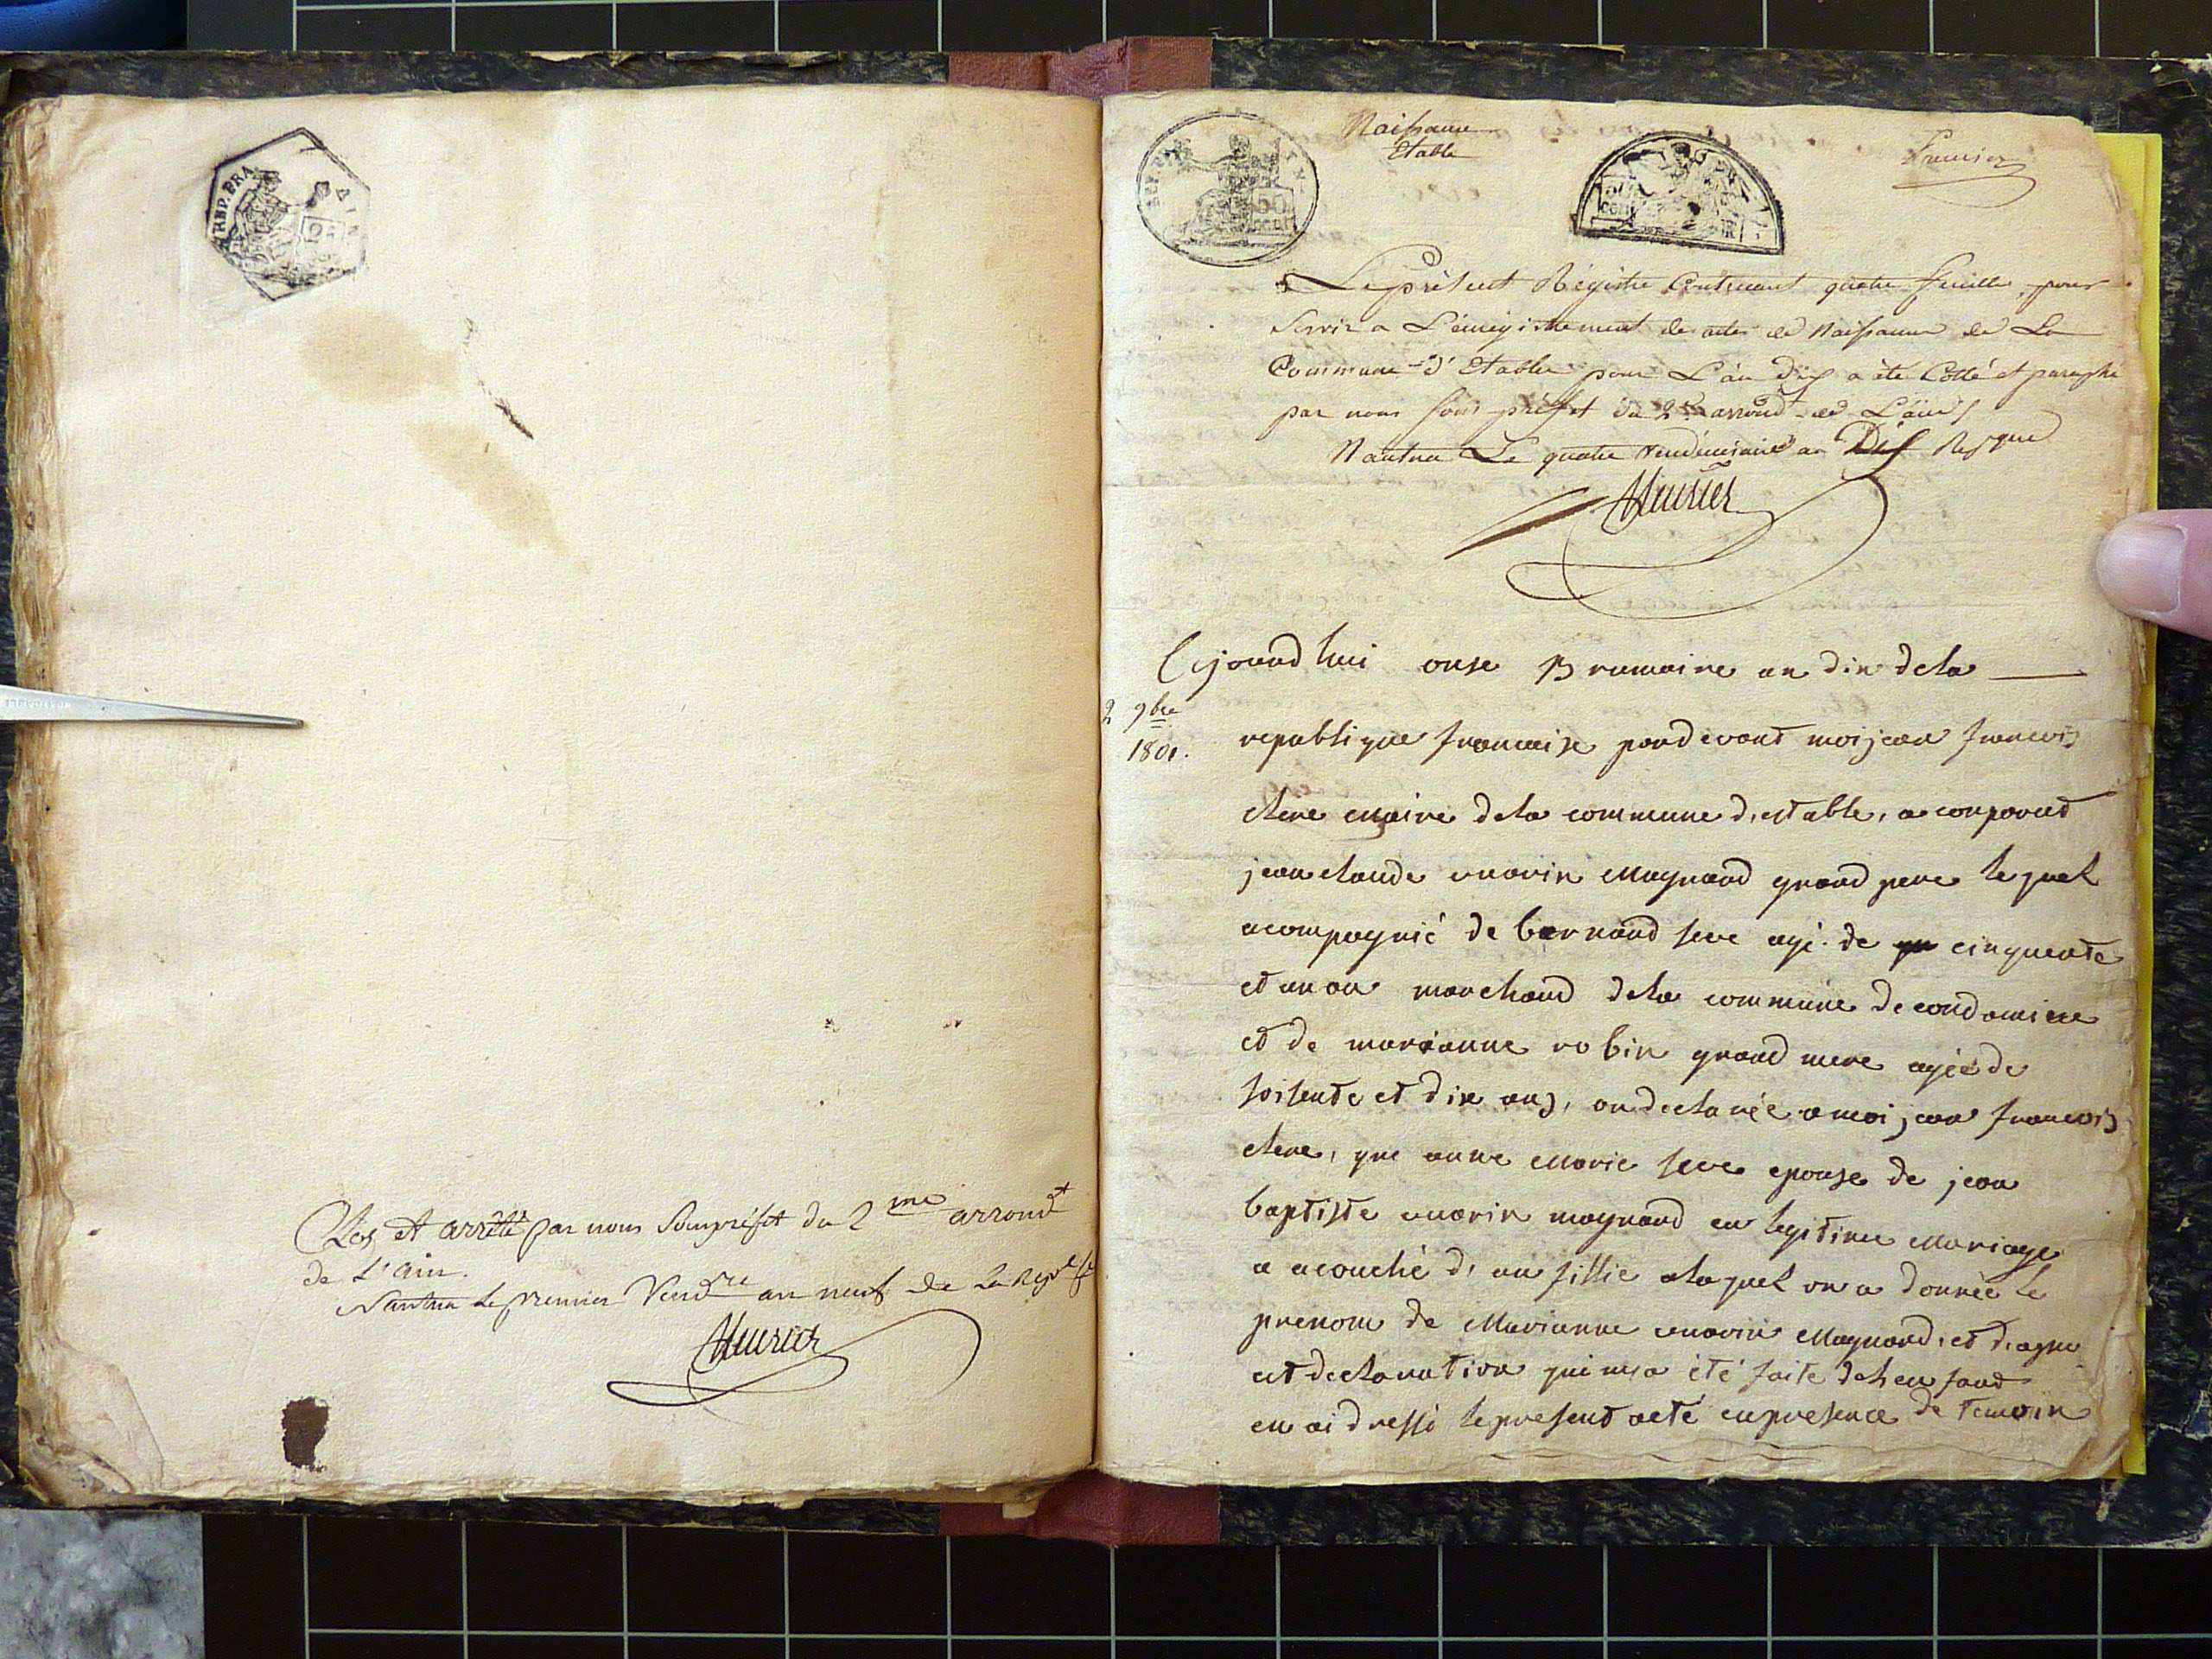 REP. FRA
AIN
25
Clos et arrêté par nous Souspréfet du 2me arrondt
de L'Ain.
Nantua le premier Vendre an neuf de La Repe fse
REP. FRA
50
CENT
Naissance
Etable
Premier
Le présent Régistre Contenant quatre feuilles, pour
Servir a L'enrégistrement des actes de Naissance de La
Commune d'Etable pour L'an dix a été Cotté et paraphé
par nous sous-préfet du 2e arrondt de L'ain
Nantua Le quatre Vendémiaire an Dix
Cejourdhui onse Brumaire an dix dela
2 9bre
1801.
republique francaise pardevant moi jean francois
maire dela commune d'estable, a conparut
jean claude marin Maynard grand pere lequel
acompagnié de bernard seve agé de cinquente
et un an marchand dela commune de condamine
et de marianne robin grand mere agée de
soisente et dix ans, on declarée a moi jean francois
que anne Marie seve epouse de jean
baptiste marin maynard en legitime Mariage
a acouché d'un fillie alaquel on a donnée le
prenom de Marianne marin Maynard, et
declaration qui m'a été faite
en ai dressé le present acté en presence de temoin